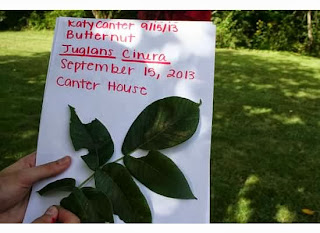 Katy Canter 9/15/13
Butternut
Juglans Cinira
September 15, 2013
Canter House